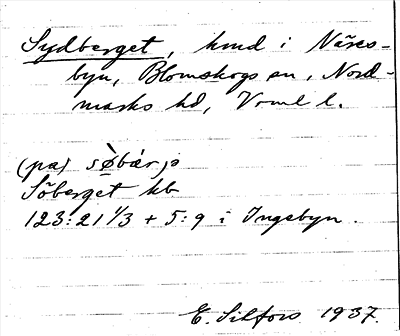 Sydberget, hmd i Näres-
byn, Blomskogs sn, Nord-
marks hd, Vrml l.
(pa) sø̀bærjə
Söberget kb
123:21 1/3 + 5:9 i Ingebyn.
E. Silfors 1937.